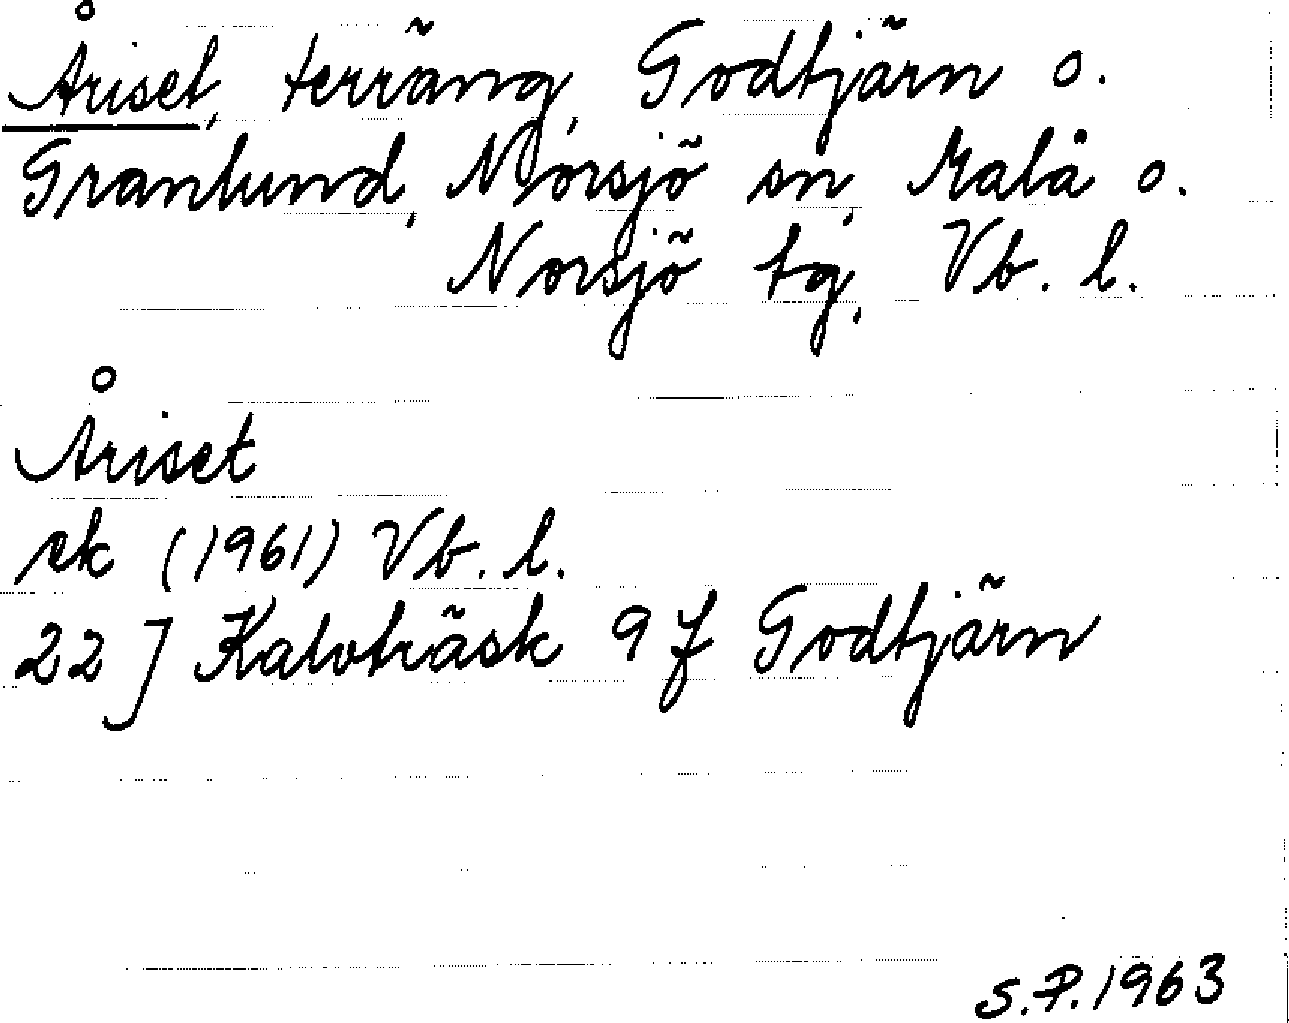 Åriset, terräng, Godtjärn o.
Granlund, Norsjö sn, Malå o.
Norsjö tg, Vb. l.
Åriset
ek (1961) Vb. l.
22 J Kalvträsk 9 f Godtjärn
S.P. 1963